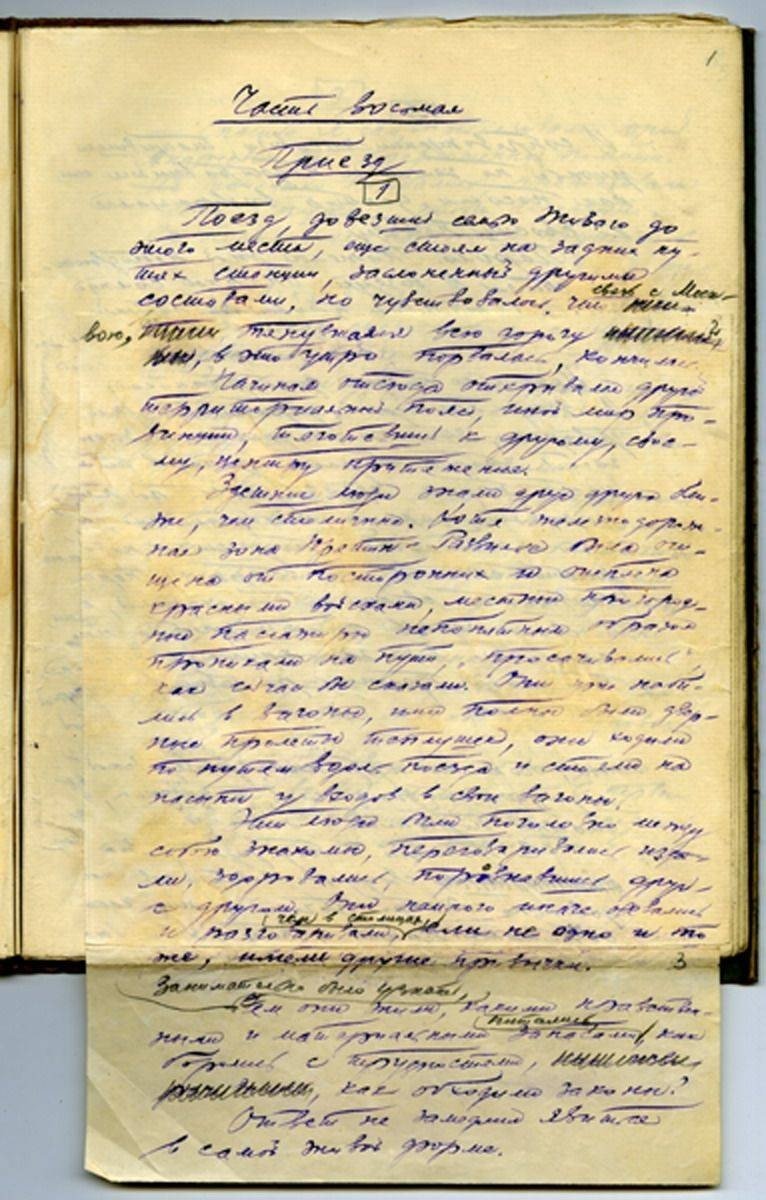 1
Часть восьмая
Приезд
1
Поезд, довезший семью Живаго до
этого места, еще стоял на задних пу-
тях станции, заслоненный другими
связь с Моск-
составами, но чувствовалось, что
вою, тянувшаяся всю дорогу
в это утро порвалась, кончилась.
Начиная отсюда открывался другой
территориальный пояс, иной мир про-
винции, тяготевший к другому, свое-
му, центру притяжения.
Здешние люди знали друг друга бли-
же, чем столичные. Хотя железнодорож-
ная зона Юрятин - Развилье была очи-
щена от посторонних и оцеплена
красными войсками, местные пригород-
ные пассажиры непонятным образом
проникали на пути, просачивались,
как сейчас бы сказали. Они уже наби-
лись в вагоны, ими полны были двер-
ные пролеты теплушек, они ходили
по путям вдоль поезда и стояли на
насыпи у входов в свои вагоны.
Эти люди были поголовно между
собою знакомы, переговаривались изда-
ли, здоровались, поровнявшись друг
с другом. Они немного иначе одевались
чем в столицах,
и разговаривали, ели не одно и то
же, имели другие привычки. 3
Занимательно было узнать,
чем они жили, какими нравствен-
питались,
ными и материальными запасами как
боролись с трудностями,
как обходили законы?
Ответ не замедлил явиться
в самой живой форме.